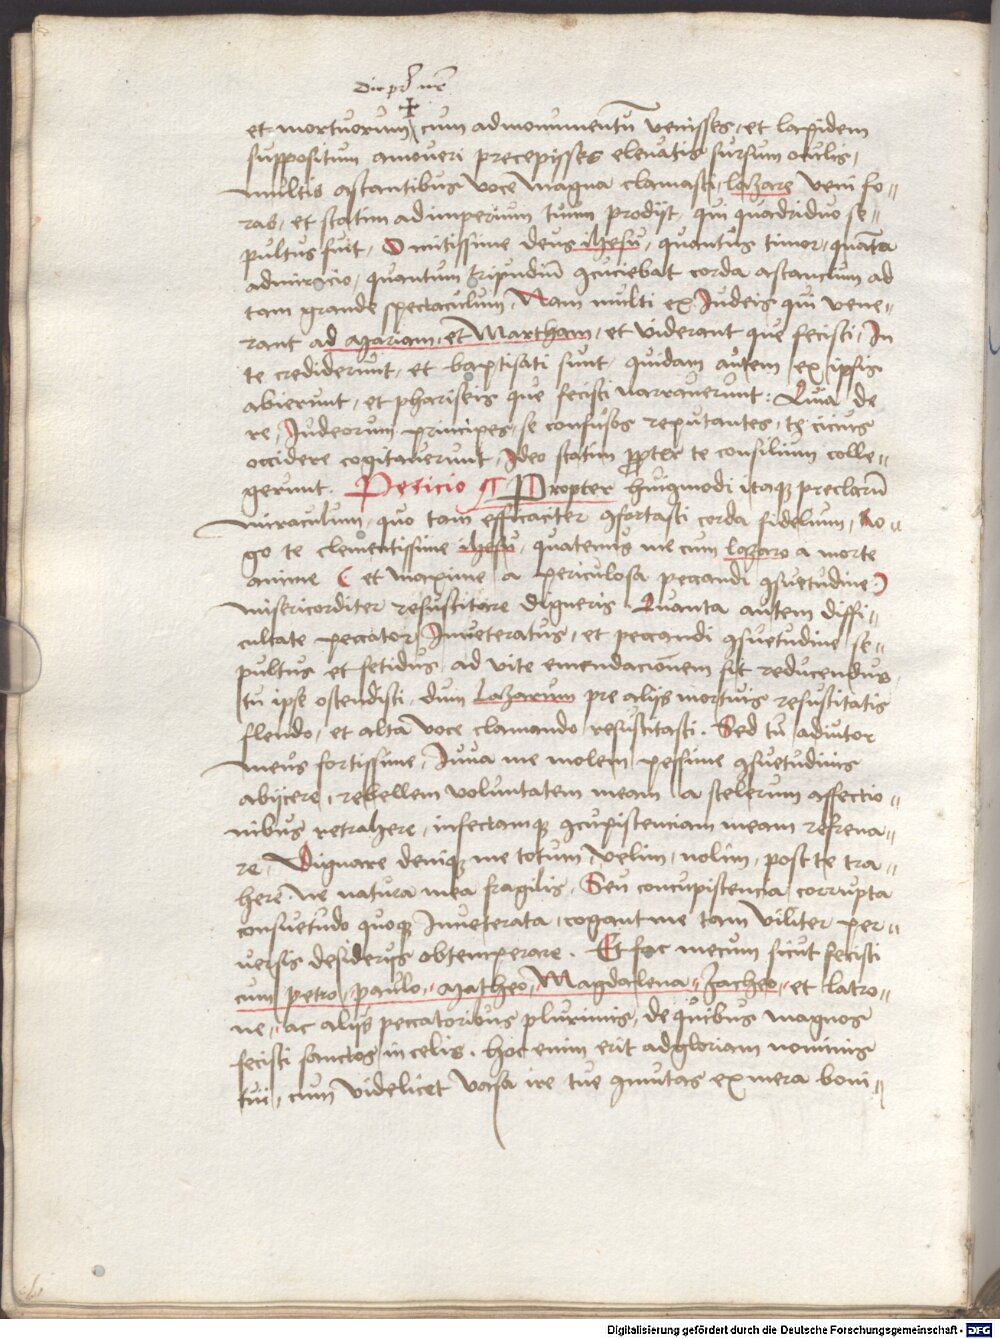 Dic pr̄ nr̄
✝
et mortuorum, cum ad monumentū venisses, et lapidem
suppositum amoveri precepisses elevatis sursum oculis,
multis astantibus voce magna clamasti, lazare veni fo-
ras, et statim ad imperium tuum prodijt, qui quadriduo se-
pultus fuit. O mitissime deus ihesu, quantus timor, quāta
admiracio, quantum tripudiū ꝯcuciebat corda astancium ad
tam grande spectaculum, Nam multi ex Judeis qui vene-
rant ad Mariam, et Martham, et viderant que fecisti, In
te crediderunt, et baptisati sunt, quidam autem ex ipsis
abierunt, et phariseis que fecisti narraverunt: Qua de
re, Judeorum principes, se confusos reputantes, te cicius
occidere cogitaverunt, Ideo statim propter te consilium colle-
gerunt. Peticio ¶ Propter huiusmodi itaqꝫ preclarū
miraculum, quo tam efficaciter ꝯfortasti corda fidelium, Ro-
go te clementissime ihesu, quatenus me cum lazaro a morte
anime ( et maxime a periculosa peccandi ꝯsuetudine )
misericorditer resuscitare digneris. Quanta autem diffi-
cultate peccator Inveteratus, et peccandi ꝯsuetudine se-
pultus et fetidus, ad vite emendacionem sit reducendus,
tu ipse ostendisti, dum Lazarum pre alijs mortuis resuscitatis
flendo, et alta voce clamando resuscitasti. Sed tu adiutor
meus fortissime, Iuva me molem pessime ꝯsuetudinis
abijcere, rebellem voluntatem meam a scelerum affectio-
nibus retrahere, infectamqꝫ ꝯcupiscenciam meam refrena-
re, Dignare deniqꝫ me totum, velim, nolim, post te tra-
here, ne natura mea fragilis, Seu concupiscencia corrupta
consuetudo quoqꝫ Inveterata, cogant me tam viliter per-
versis desiderijs obtemperare. Et fac mecum sicut fecisti
cum petro, paulo, Matheo, Magdalena, Zacheo, et latro-
ne, ac alijs peccatoribus plurimis, de quibus magnos
fecisti sanctos in celis. hoc enim erit ad gloriam nominis
tui, cum videlicet vasa ire tue ꝯmutas ex mera boni-
Digitalisierung gefördert durch die Deutsche Forschungsgemeinschaft - DFG